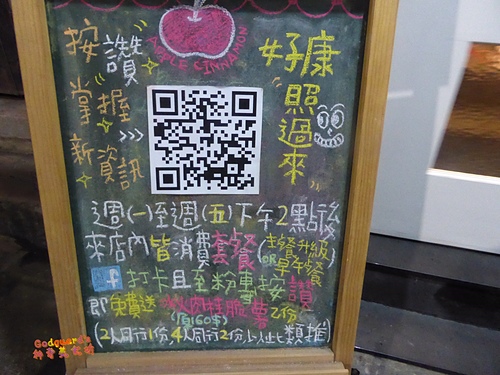 APPLE CINNAMON
按讚
掌握
新資訊
>>>
好康
"照過來"
週(一)至週(五)下午2點後
來店內皆消費套餐(主餐升級
OR早午餐)
f打卡且至粉專按讚
即免費送
薯乙份
(價值60元)
(2人同行1份,4人同行2份,以此類推)